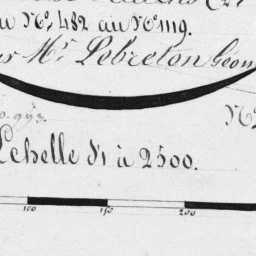 au N.° 482 au N.° 1119.
Mr Lebreton Géom
N.°
Echelle d'1 à 2500.
100 150 200